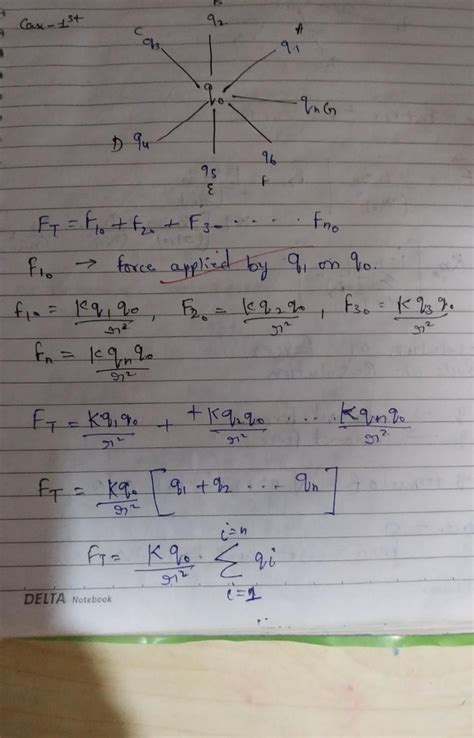 Case - 1st
B
q2
C
A
q3
q1
q0
qn G
D q4
q5
q6
E
F
FT = F10 + F20 + F3- ..... Fn0
F10 → force applied by q1 on q0.
F10 = Kq1q0/r², F20 = Kq2q0/r², F30 = Kq3q0/r²
Fn = Kqnq0/r²
FT = Kq1q0/r² + +Kq2q0/r² .... Kqnq0/r²
FT = Kq0/r² [q1 + q2 ... qn]
FT = Kq0/r² . i=n Σ i=1 qi
DELTA Notebook